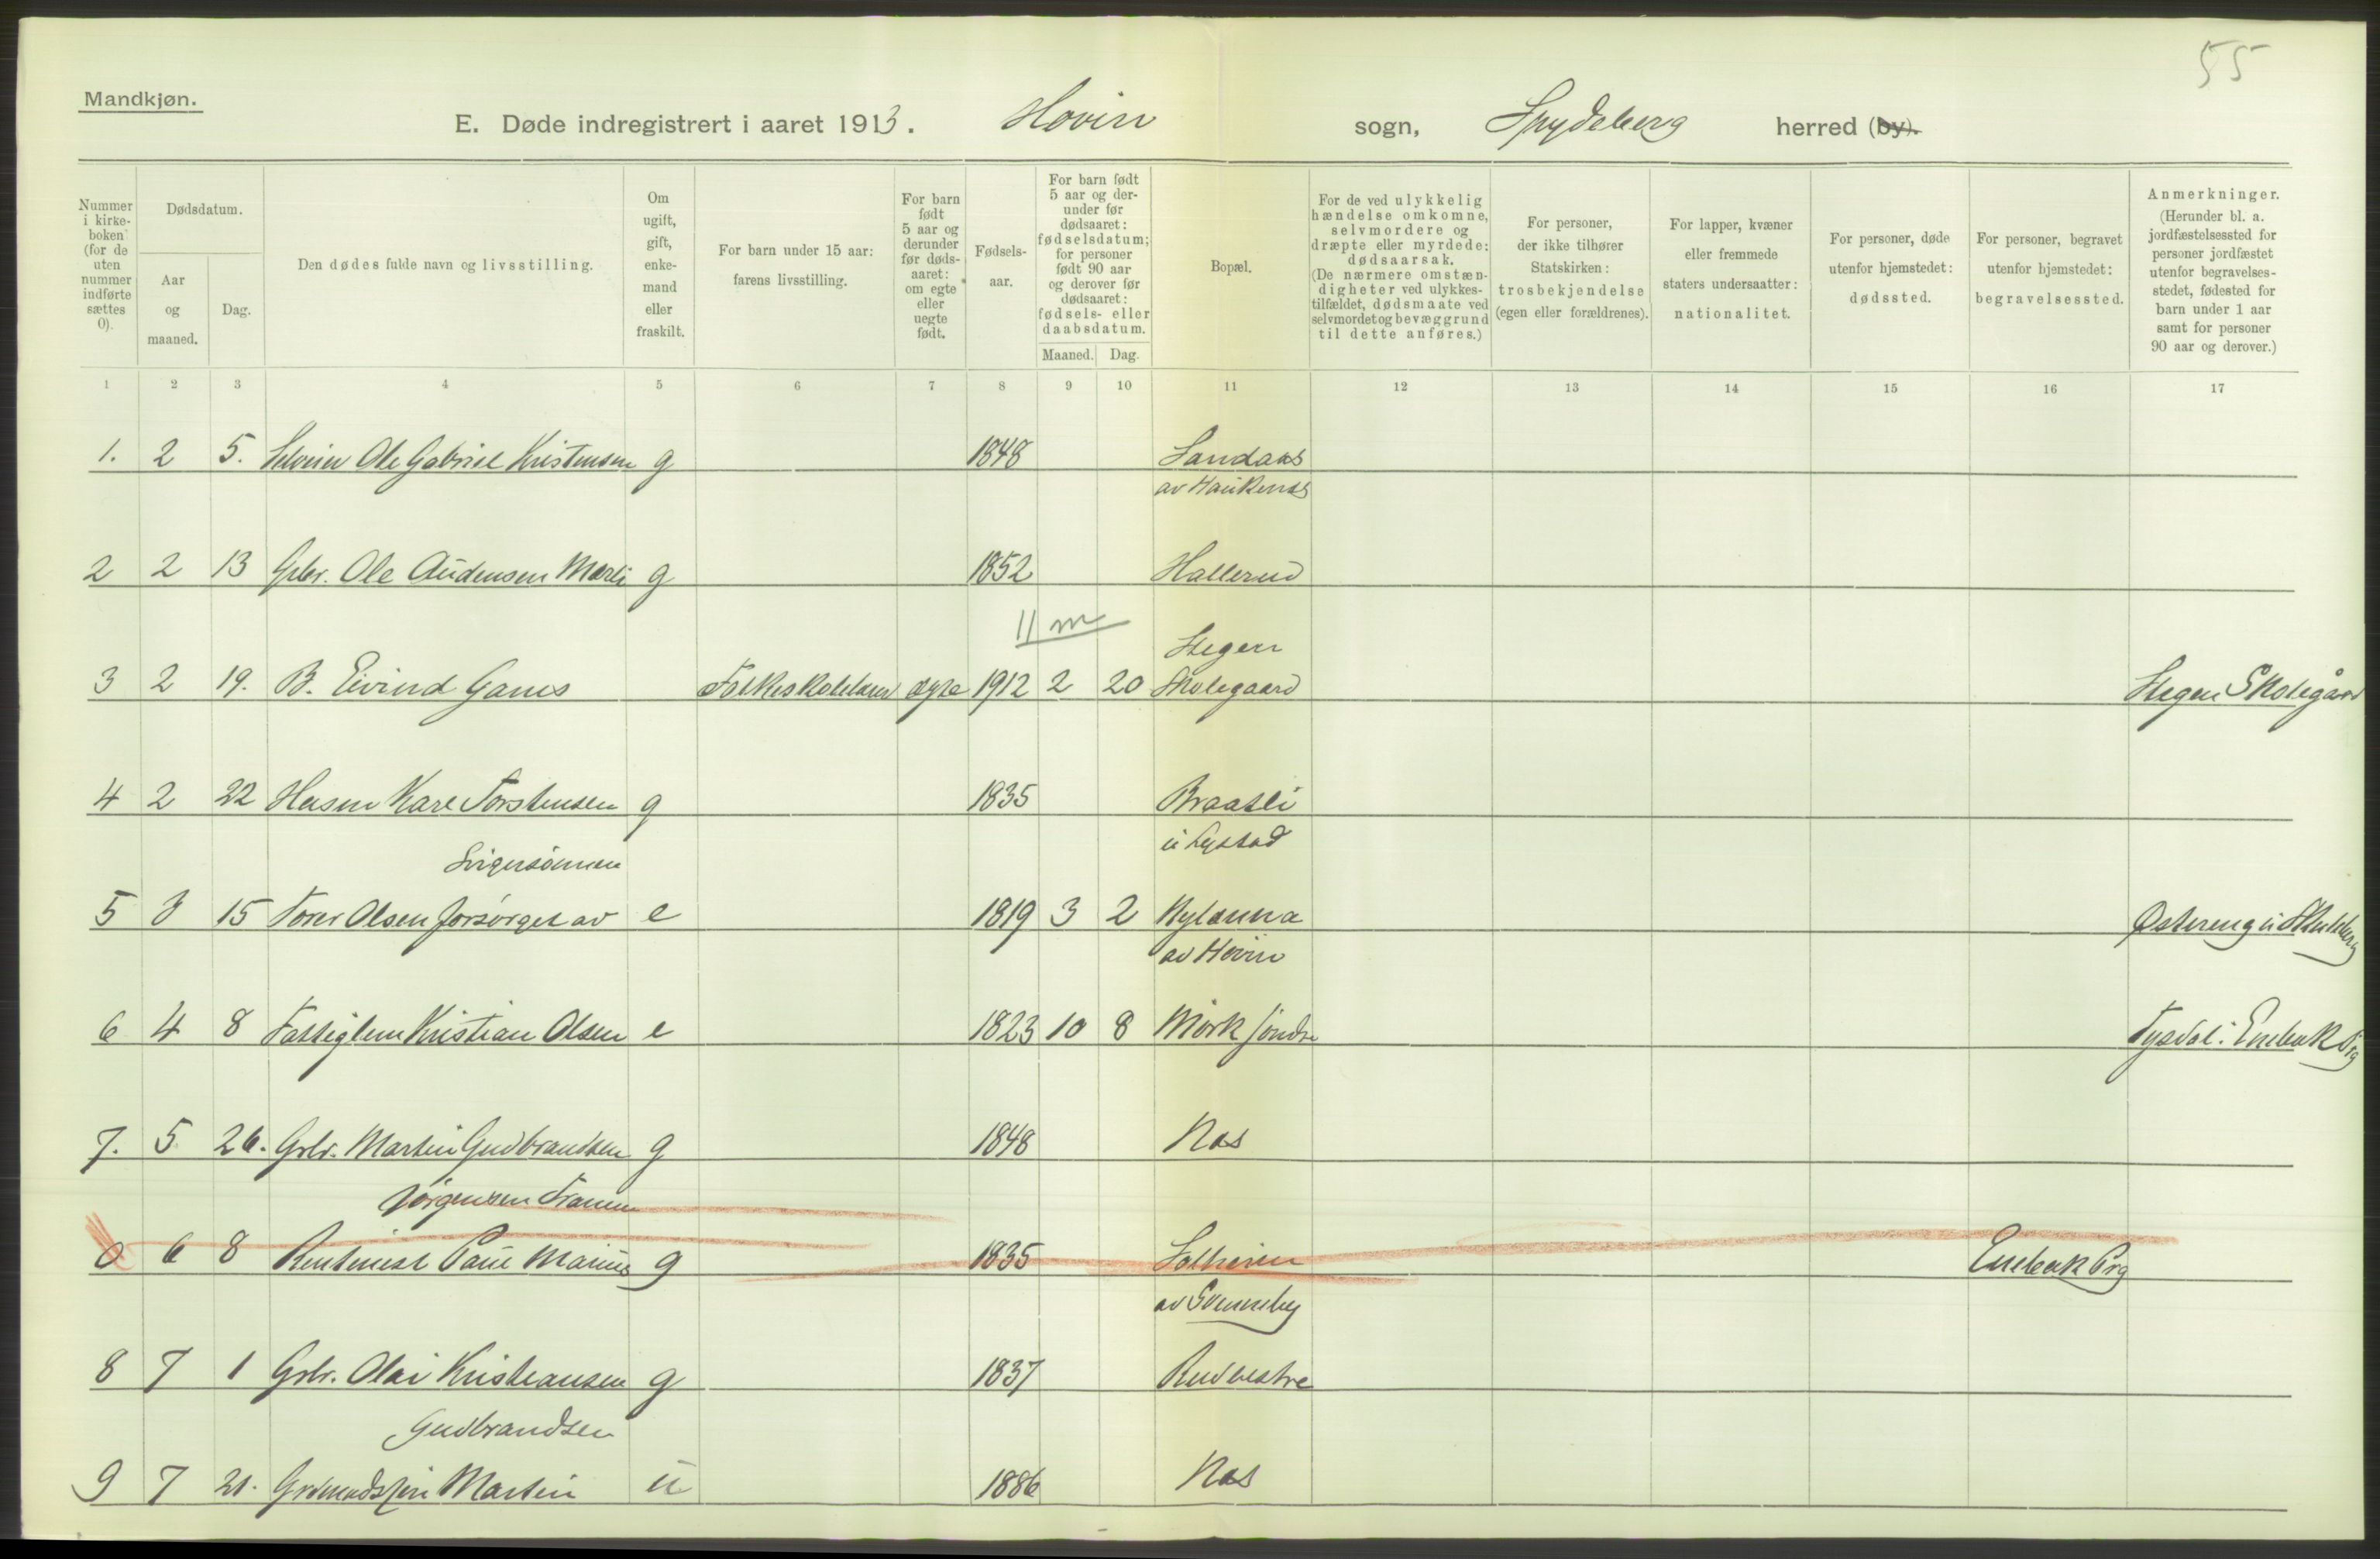 55
Mandkjøn.
E. Døde indregistrert i aaret 1913. Hovin sogn, Spydeberg herred (by).
Nummer i kirkeboken (for de uten nummer indførte sættes 0).
Dødsdatum.
Aar og maaned.
Dag.
Den dødes fulde navn og livsstilling.
Om ugift, gift, enkemand eller fraskilt.
For barn under 15 aar: farens livsstilling.
For barn født 5 aar og derunder før dødsaaret: om egte eller uegte født.
Fødselsaar.
For barn født 5 aar og derunder før dødsaaret: fødselsdatum; for personer født 90 aar og derover før dødsaaret: fødsels- eller daabsdatum.
Maaned. Dag.
Bopæl.
For de ved ulykkelig hændelse omkomne, selvmordere og dræpte eller myrdede: dødsaarsak. (De nærmere omstændigheter ved ulykkestilfældet, dødsmaate ved selvmordet og bevæggrund til dette anføres.)
For personer, der ikke tilhører Statskirken: trosbekjendelse (egen eller forældrenes).
For lapper, kvæner eller fremmede staters undersaatter: nationalitet.
For personer, døde utenfor hjemstedet: dødssted.
For personer, begravet utenfor hjemstedet: begravelsessted.
Anmerkninger. (Herunder bl. a. jordfæstelsessted for personer jordfæstet utenfor begravelsesstedet, fødested for barn under 1 aar samt for personer 90 aar og derover.)
1 2 3 4 5 6 7 8 9 10 11 12 13 14 15 16 17
1. 2 5. Ole Gabriel Kristensen g 1848 Sandaas
av Haukenes
2 2 13 Gbr. Ole Audensen Mørli g 1852 Hallerud
11 m
Stegen
3 2 19. B. Eivind Gaus Folkeskolelærer egte 1912 2 20 Skolegaard Stegen Skolegård
4 2 22 Husm Karl Torstensen g 1835 Braatli
u Lystad
Svigersønnen
5 3 15 Torer Olsen forsørget av e 1819 3 2 Nylænna Østereng i
av Hovin
6 4 8 Fattiglem Kristian Olsen e 1823 10 8 Mørk søndre Tysdal i Enebak Prg
7. 5 26. Grbr. Martin Gudbrandsen g 1848 Næs
Jørgensen
0 6 8 Rentenist Paul Marius g 1835 Solheim Enebak Prg
av Svenneby
8 7 1 Grbr. Olai Kristiansen g 1837 Rud vestre
Gudbrandsen
9 7 21. Martin u 1886 Næs